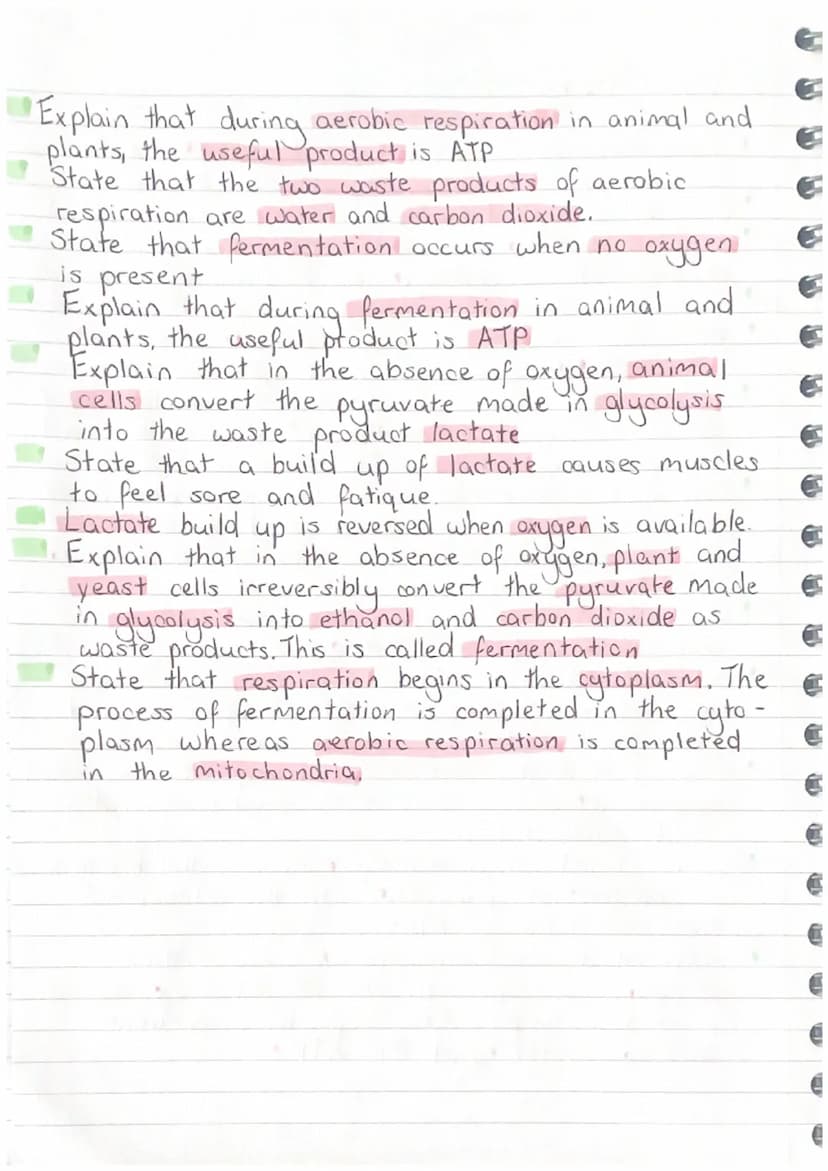 Explain that during aerobic respiration in animal and
plants, the useful product is ATP
State that the two waste products of aerobic
respiration are water and carbon dioxide.
State that fermentation occurs when no oxygen
is present
Explain that during fermentation in animal and
plants, the useful product is ATP
Explain that in the absence of oxygen, animal
cells convert the pyruvate made in glycolysis
into the waste product lactate
State that a build up of lactate causes muscles
to feel sore and fatique.
Lactate build up is reversed when oxygen is available.
Explain that in the absence of oxygen, plant and
yeast cells irreversibly convert the pyruvate made
in glycolysis into ethanol and carbon dioxide as
waste products. This is called fermentation
State that respiration begins in the cytoplasm. The
process of fermentation is completed in the cyto-
plasm whereas aerobic respiration is completed
in the mitochondria.